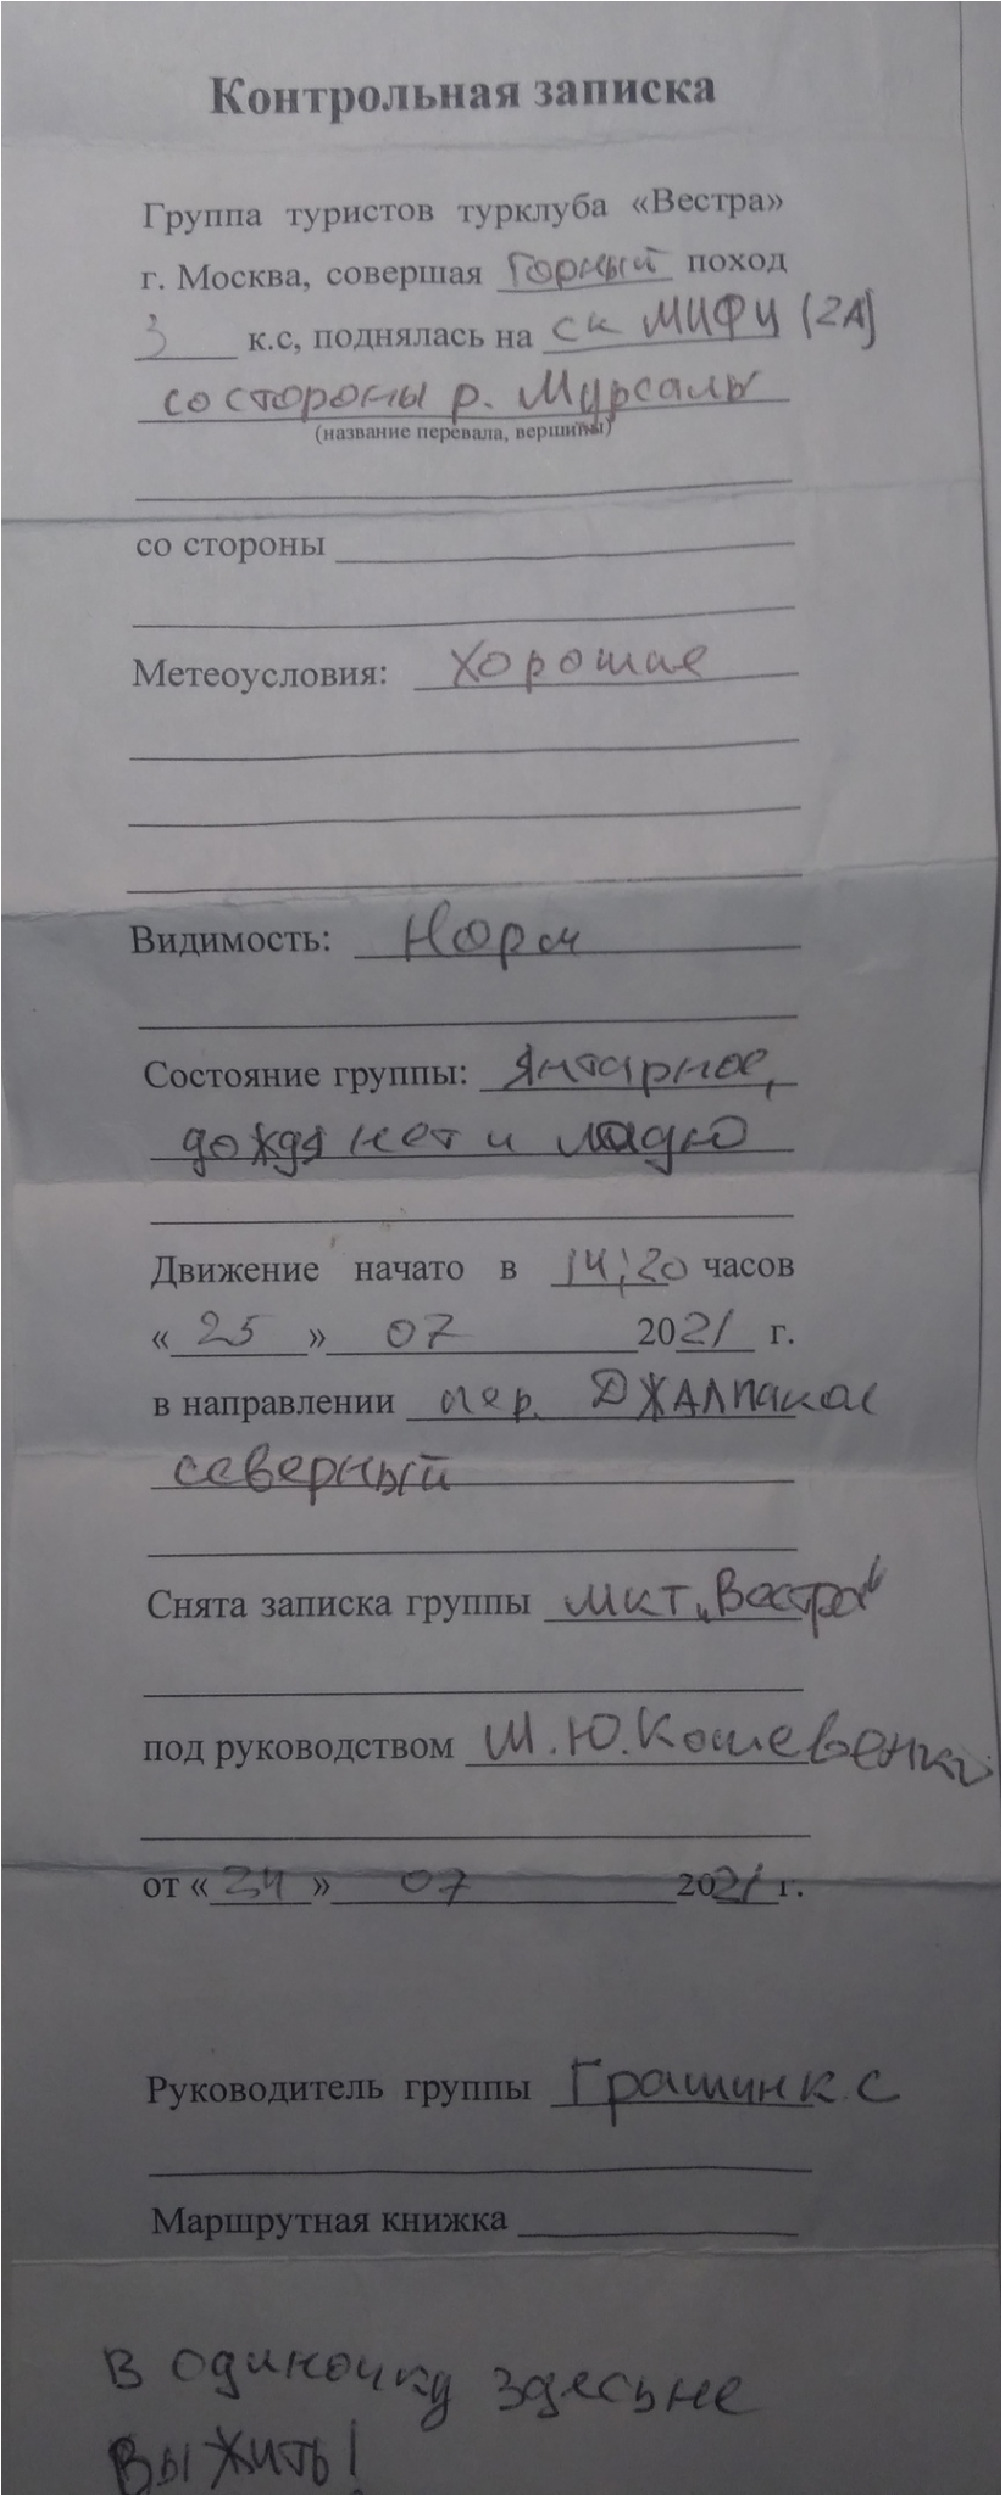 Контрольная записка
Группа туристов турклуба «Вестра»
г. Москва, совершая Горный поход
3 к.с, поднялась на ск МИФИ (2А)
со стороны р. Мурсалы
(название перевала, вершины)
со стороны
Метеоусловия: Хорошие
Видимость: Норм
Состояние группы: Янтарное,
дождя нет и ладно
Движение начато в 14:20 часов
«25» 07 2021 г.
в направлении пер. ДЖАЛпакол
северный
Снята записка группы МКТ „Вестра“
под руководством М.Ю. Кошевенко
от «24» 07 2021 г.
Руководитель группы Грашин К.С
Маршрутная книжка
В одиночку здесь не
выжить!